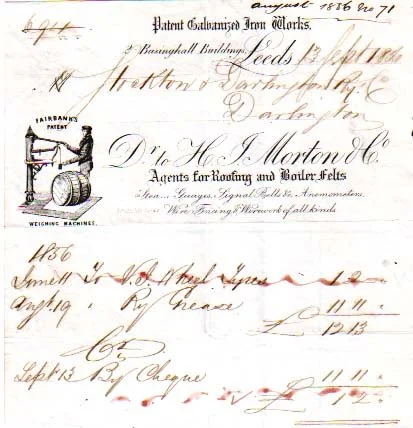 August 1856 No 71
Patent Galvanized Iron Works.
2 Basinghall Buildings, Leeds 13 Sept 1860
Stockton & Darlington Ry. Co
Darlington
FAIRBANK'S
PATENT
WEIGHING MACHINES
Dr. to H. J. Morton & Co.
Agents for Roofing and Boiler Felts
Steam Guages, Signal Bells &c Anemometers.
Wire Fencing & Wirework of all kinds
1856
To V. S. Wheel Tyres 1 2 "
Augt. 19 " Ry Grease 11 11 "
£ 12 13
Cr
Sept 13 By Cheque 11 11 "
£ 1 2 "